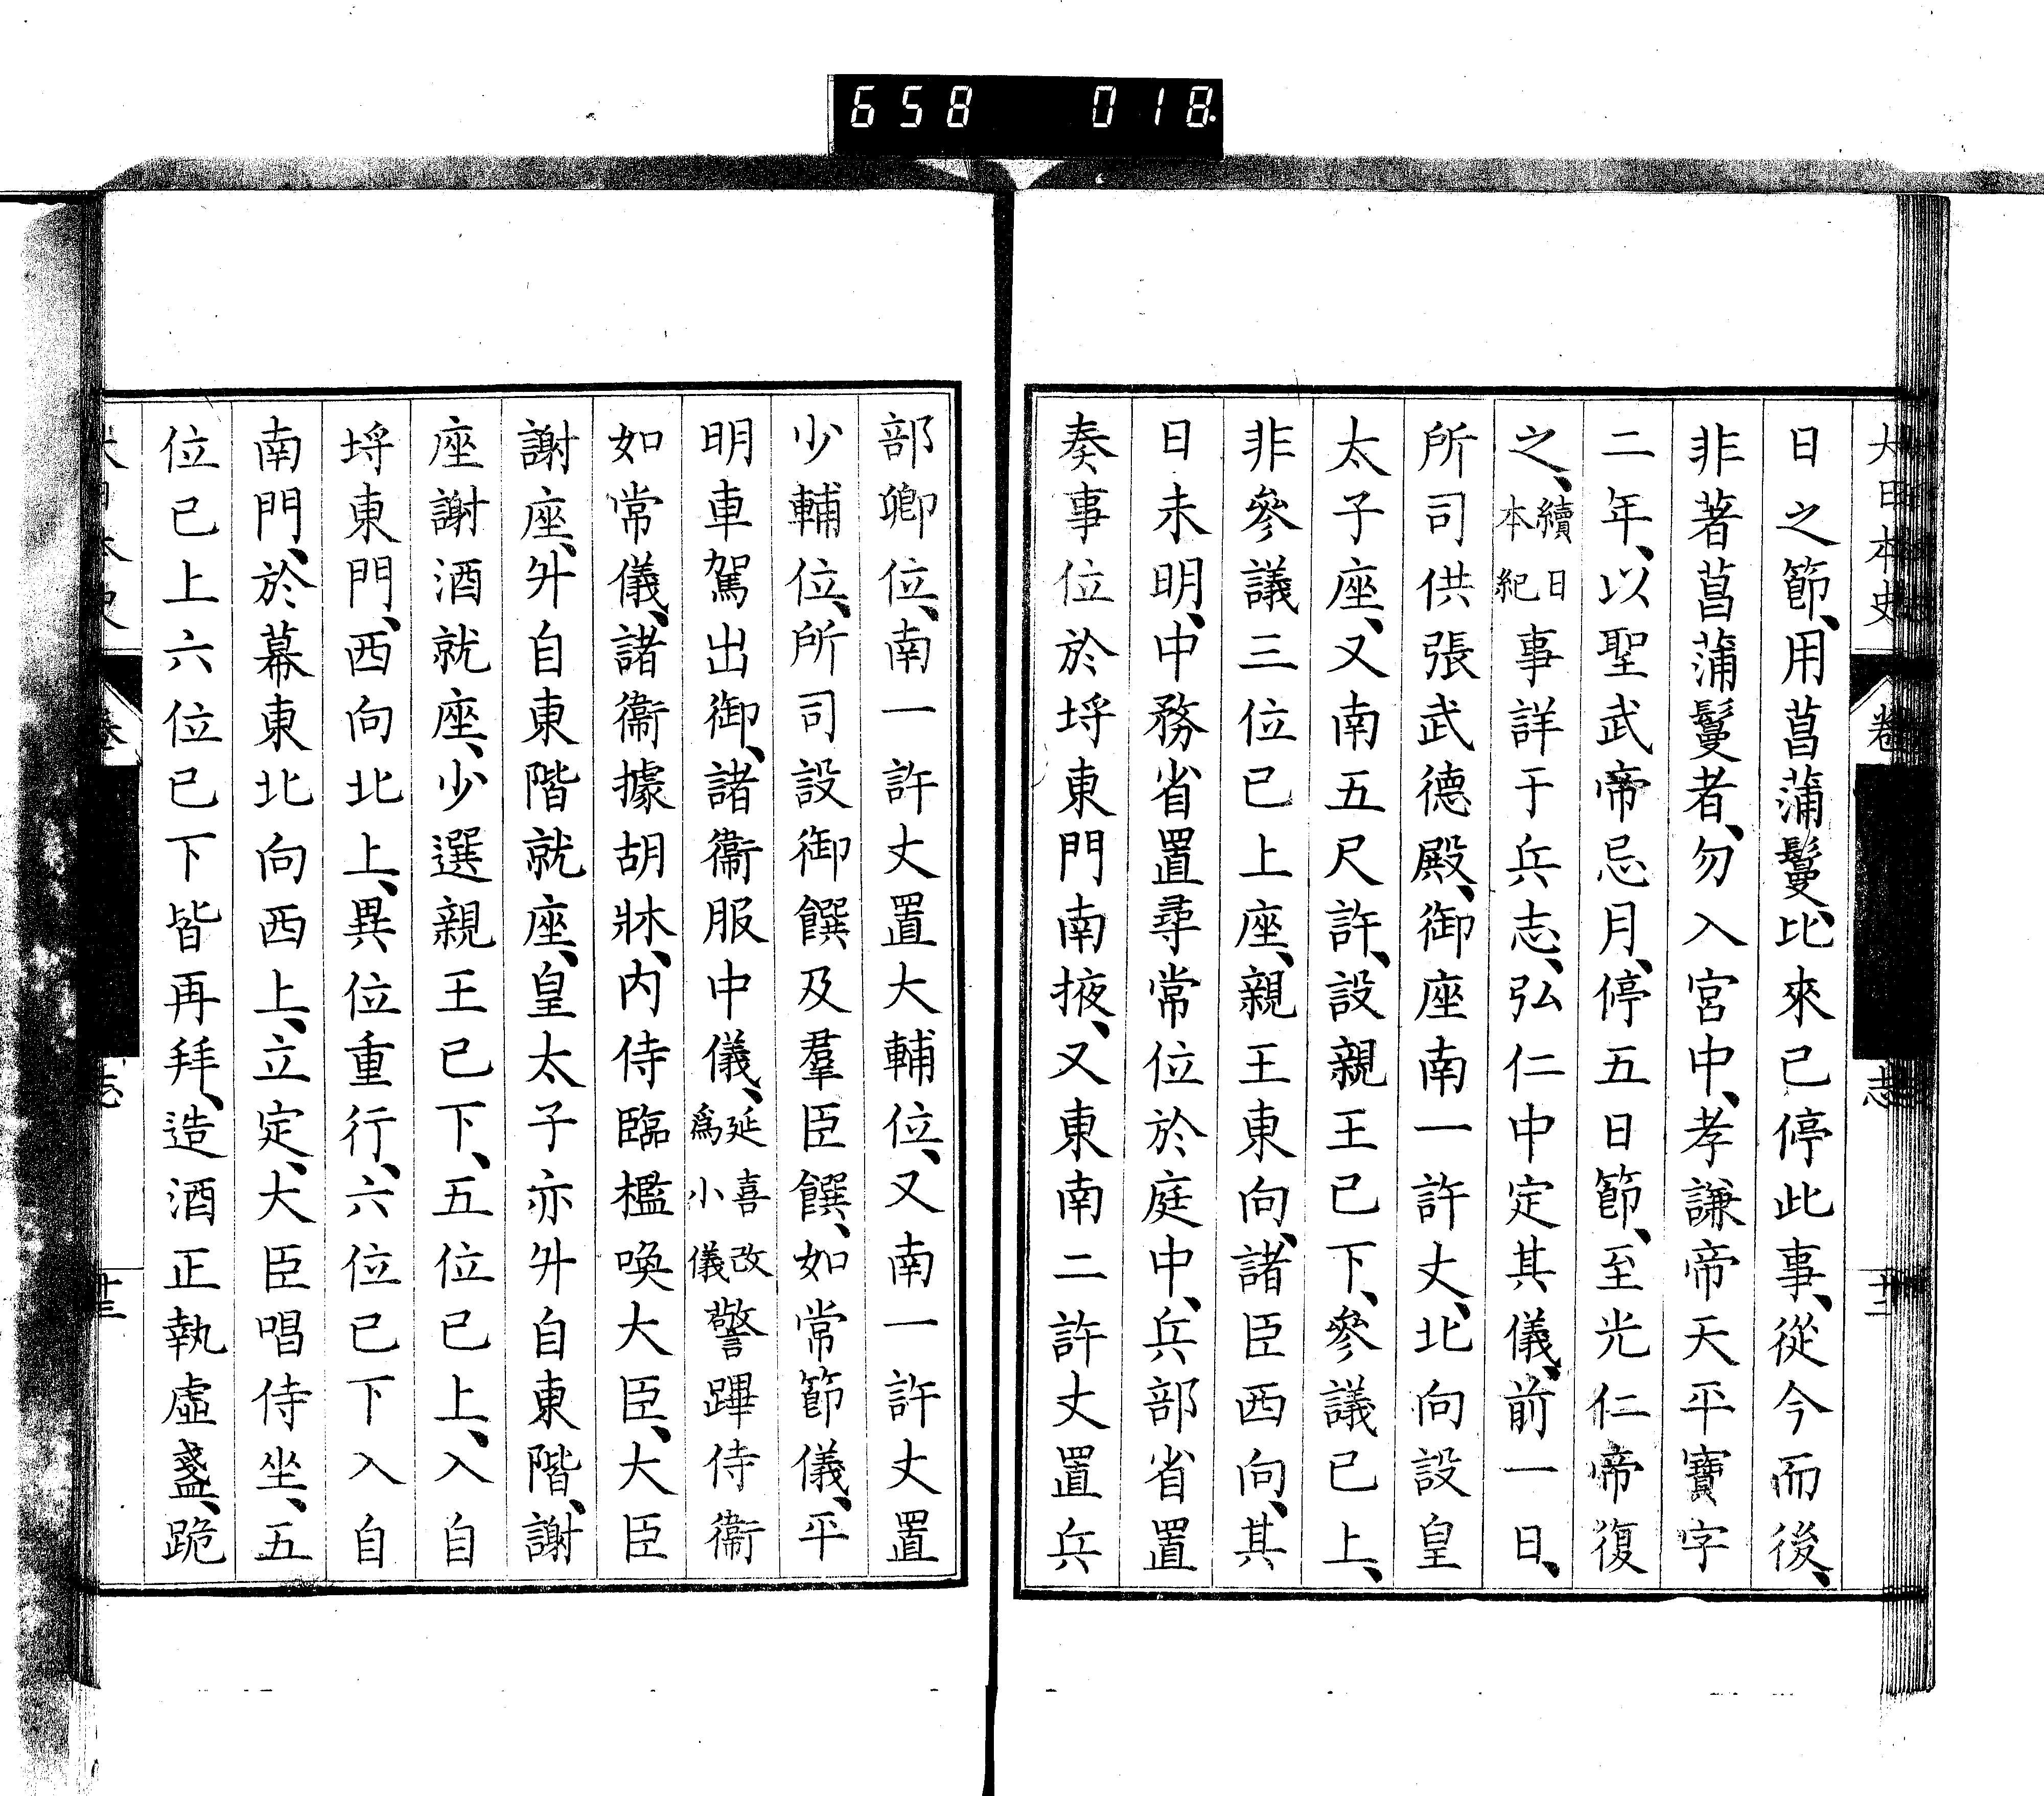 658 018
大日本史 卷 志 十二
日之節、用菖蒲鬘、比來已停此事、從今而後、
非著菖蒲鬘者、勿入宮中、孝謙帝天平寶字
二年、以聖武帝忌月、停五日節、至光仁帝復
之、續日本紀事詳于兵志、弘仁中定其儀、前一日、
所司供張武德殿、御座南一許丈、北向設皇
太子座、又南五尺許、設親王已下、參議已上、
非參議三位已上座、親王東向、諸臣西向、其
日未明、中務省置尋常位於庭中、兵部省置
奏事位於埒東門南掖、又東南二許丈置兵
部卿位、南一許丈置大輔位、又南一許丈置
少輔位、所司設御饌及羣臣饌、如常節儀、平
明車駕出御、諸衞服中儀、延喜改爲小儀警蹕侍衞
如常儀、諸衞據胡牀、內侍臨檻喚大臣、大臣
謝座、升自東階就座、皇太子亦升自東階、謝
座謝酒就座、少選親王已下、五位已上、入自
埒東門、西向北上、異位重行、六位已下入自
南門、於幕東北向西上、立定、大臣唱侍坐、五
位已上六位已下皆再拜、造酒正執虛盞、跪